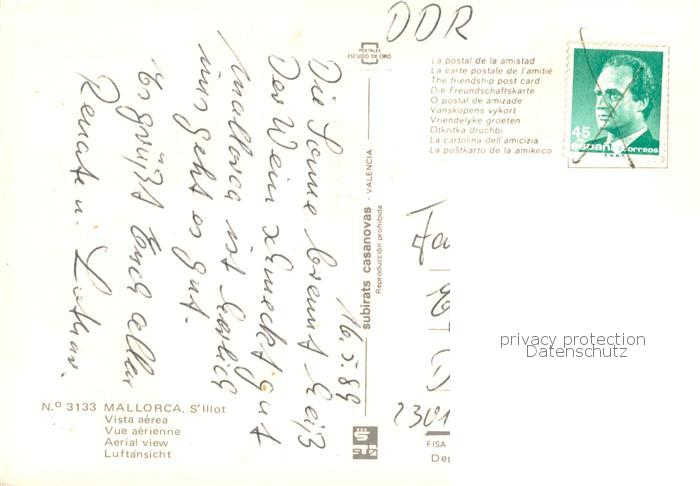 DDR
POSTALES
ESCUDO DE ORO
La postal de la amistad
La carte postale de l'amitié
The friendship post card
Die Freundschaftskarte
O postal de amizade
Vanskopens vykort
Vriendelyke groeten
Otkritka druchbi
La cartolina dell'amicizia
La poŝtkarto de la amikeco
45
españa correos
F.N.M.T.
16.5.89
Die Sonne brennt heiß
Der Wein schmeckt gut
Mallorca ist herrlich
uns geht es gut.
Es grüßt Euch alle
Renate u. Lothar.
subirats casanovas - VALENCIA
Reproducción prohibida
Fa
2301
privacy protection
Datenschutz
N.º 3133 MALLORCA. S'Illot
Vista aérea
Vue aérienne
Aerial view
Luftansicht
FISA
Dep